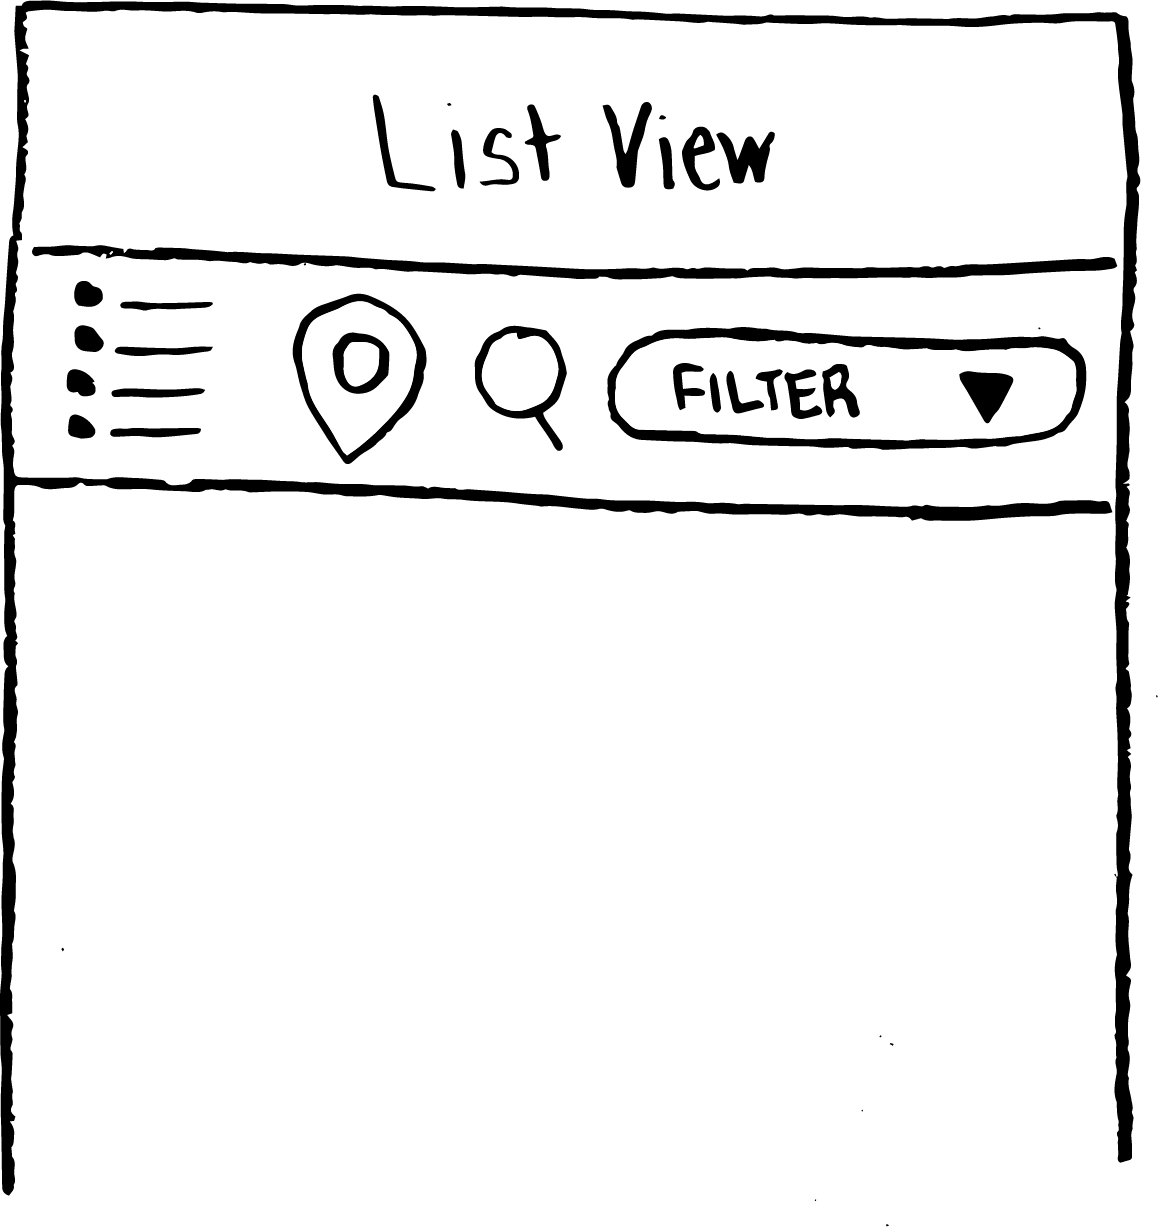 List View
FILTER